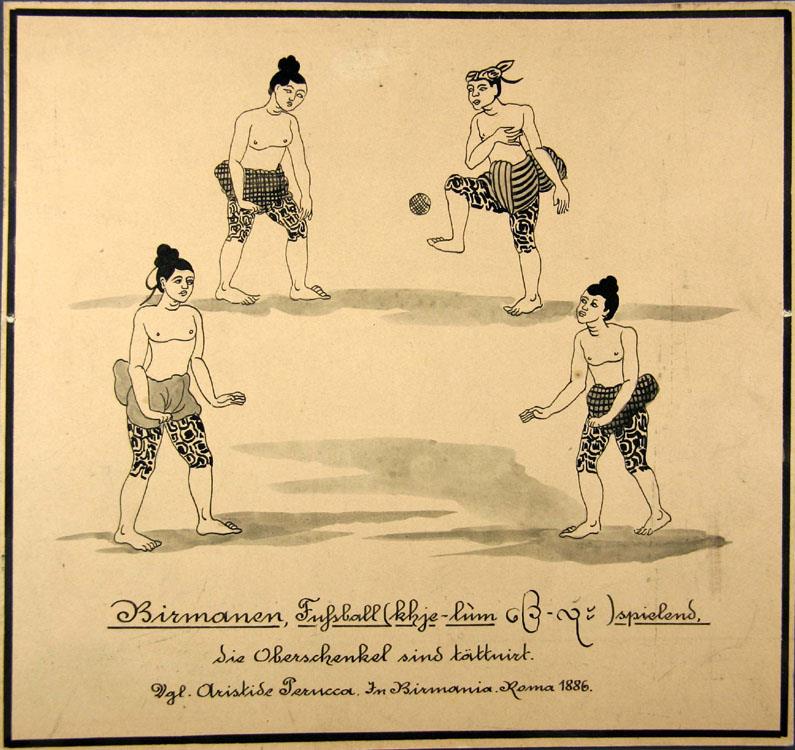 Birmanen, Fuſsball (khje-lùm ) spielend,
die Oberschenkel sind tättuirt.
Vgl. Aristide Perucca. In Birmania. Roma 1886.